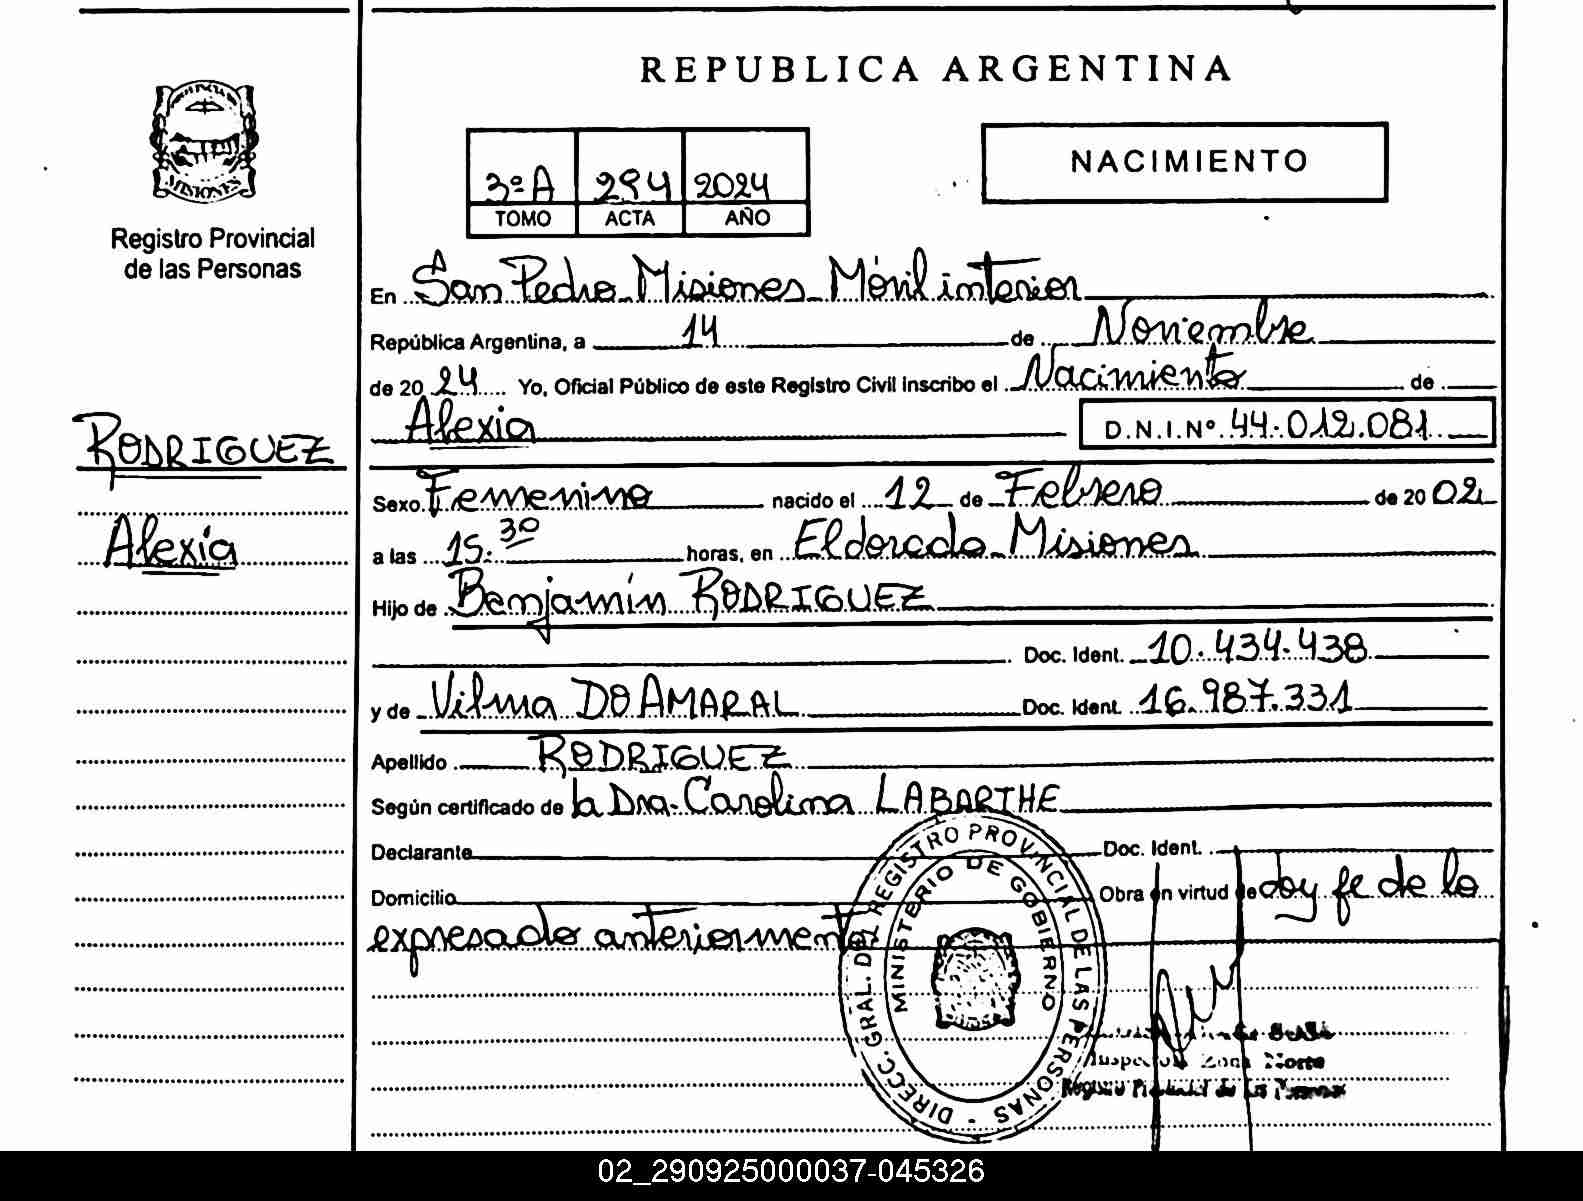 REPUBLICA ARGENTINA
PROVINCIA DE
MISIONES
Registro Provincial
de las Personas
3º A 294 2024
TOMO ACTA AÑO
NACIMIENTO
En San Pedro Misiones Móvil interior
República Argentina, a 14 de Noviembre
de 2024 Yo, Oficial Público de este Registro Civil inscribo el Nacimiento de
Alexia D.N.I.Nº 44.012.081
RODRIGUEZ
Alexia
Sexo Femenino nacido el 12 de Febrero de 2002
a las 15:30 horas, en Eldorado Misiones
Hijo de Benjamín RODRIGUEZ
Doc. Ident. 10.434.438
y de Vilma DO AMARAL Doc. Ident. 16.987.331
Apellido RODRIGUEZ
Según certificado de la Dra. Carolina LABARTHE
Declarante Doc. Ident.
Domicilio Obra en virtud de doy fe de lo
expresado anteriormente
DIRECC. GRAL. DEL REGISTRO PROVINCIAL DE LAS PERSONAS -
MINISTERIO DE GOBIERNO
Zona Norte
Registro Provincial de las Personas
02_290925000037-045326